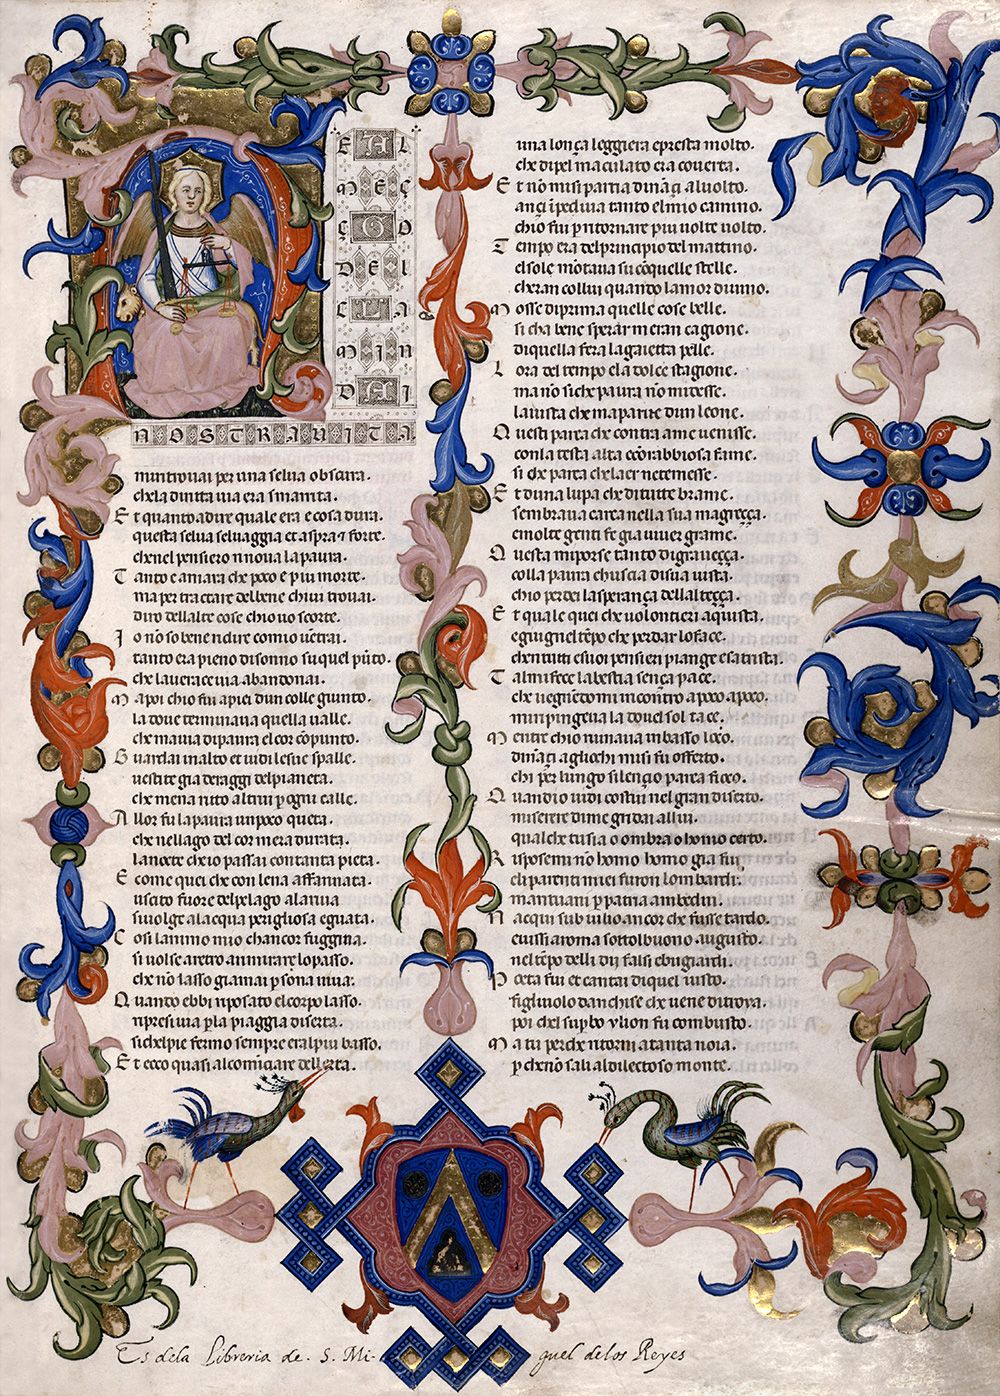 E A L
M E Ç
Ç O
D E L
C L A
M I N
D A I
NOSTRA UITA
mi ritrouai per una selua obscura.
che la diritta uia era smarrita.
Et quanto a dire quale era e cosa dura.
questa selua seluaggia et aspra ⁊ forte.
che nel pensiero rinoua la paura.
Tanto e amara che poco e piu morte.
ma per tractare del bene chiui trouai.
diro dellaltre cose chio uo scorte.
Io nõ so bene ridire comio uẽtrai.
tanto era pieno di sonno su quel pũto.
che la uerace uia abandonai.
Ma poi chio fui apiei dun colle giunto.
la doue terminaua quella ualle.
che mauia di paura el cor cõpunto.
Guardai in alto et uidi le sue spalle.
uestite gia de raggi del pianeta.
che mena rito altrui p ogni calle.
Allor fu la paura un poco queta.
che nel lago del cor mera durata.
la nocte chio passai con tanta pieta.
E come quei che con lena affannata.
uscito fuore del pelago alla riua
si uolge alacqua perigliosa e guata.
Cosi lanimo mio chancor fuggiua.
si uolse aretro a mirare lo passo.
che nõ lasso giamai psona uiua.
Quando ebbi riposato el corpo lasso.
ripresi uia p la piaggia diserta.
si chel pie fermo sempre era l piu basso.
Et ecco quasi al comĩçare dellerta.
una lonça leggiera e presta molto.
che di pel maculato era couerta.
Et nõ mi si partia dinãçi al uolto.
ançi ĩpediua tanto el mio camino.
chio fui p ritornare piu uolte uolto.
Tempo era del principio del mattino.
el sole mõtaua su cõ quelle stelle.
cheran collui quando lamor diuino.
Mosse di prima quelle cose belle.
si cha bene sperar mera n cagione.
di quella fera la gaietta pelle.
Lora del tempo e la dolce stagione.
ma nõ si che paura nõ mi desse.
la uista che maparue dun leone.
Questi parea che contra a me uenisse.
con la testa alta e cõ rabbiosa fame.
si che parea che laer ne temesse.
Et duna lupa che di tutte brame.
sembraua carca nella sua magreçça.
e molte genti fe gia uiuer grame.
Questa mi porse tanto di graueçça.
colla paura chuscia di sua uista.
chio perdei la sperança dellalteçça.
Et quale quei che uolontieri aquista.
e giugne l tẽpo che perder lo face.
che n tutti e suoi pensieri piange e satrista.
Tal mi fece la bestia sença pace.
che uegnẽdomi incõntro a poco a poco.
mi ripingeua la doue l sol tace.
Mentre chio ruinaua in basso loco.
dinãçi agliochi mi si fu offerto.
chi per lungo silençio parea fioco.
Quando uidi costui nel gran diserto.
miserere di me gridai allui.
qual che tu sia o ombra o homo certo.
Risposemi nõ homo homo gia fui
e li parenti miei furon lombardi.
mantuani p patria ambedui.
Nacqui sub iulio ancor che fusse tardo.
e uissi a roma sotto l buono augusto.
nel tẽpo delli dii falsi e bugiardi.
Poeta fui et cantai di quel iusto.
figliuolo danchise che uene di troya.
poi che l supbo ylion fu combusto.
Ma tu perche ritorni a tanta noia.
p che nõ sali al dilectoso monte.
Es dela Libreria de . S. Mi- guel delos Reyes